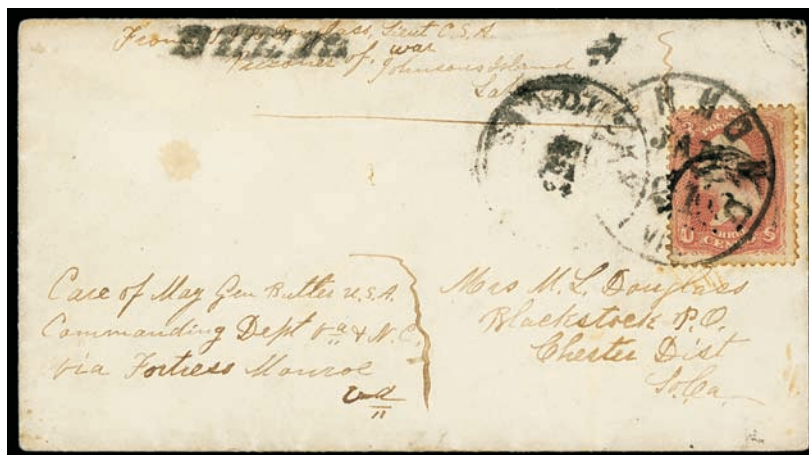 From Douglass, Lieut C.S.A.
Prisoner of war
Johnsons Island
DUE 10
SANDUSKY
RICHMOND
JAN
VA
U S
CENTS
Care of May Gen Butler U.S.A.
Commanding Dept Va & N.C.
via Fortress Monroe
Va
Mrs M. L. Douglass
Blackstock P.O.
Chester Dist
So.Ca.